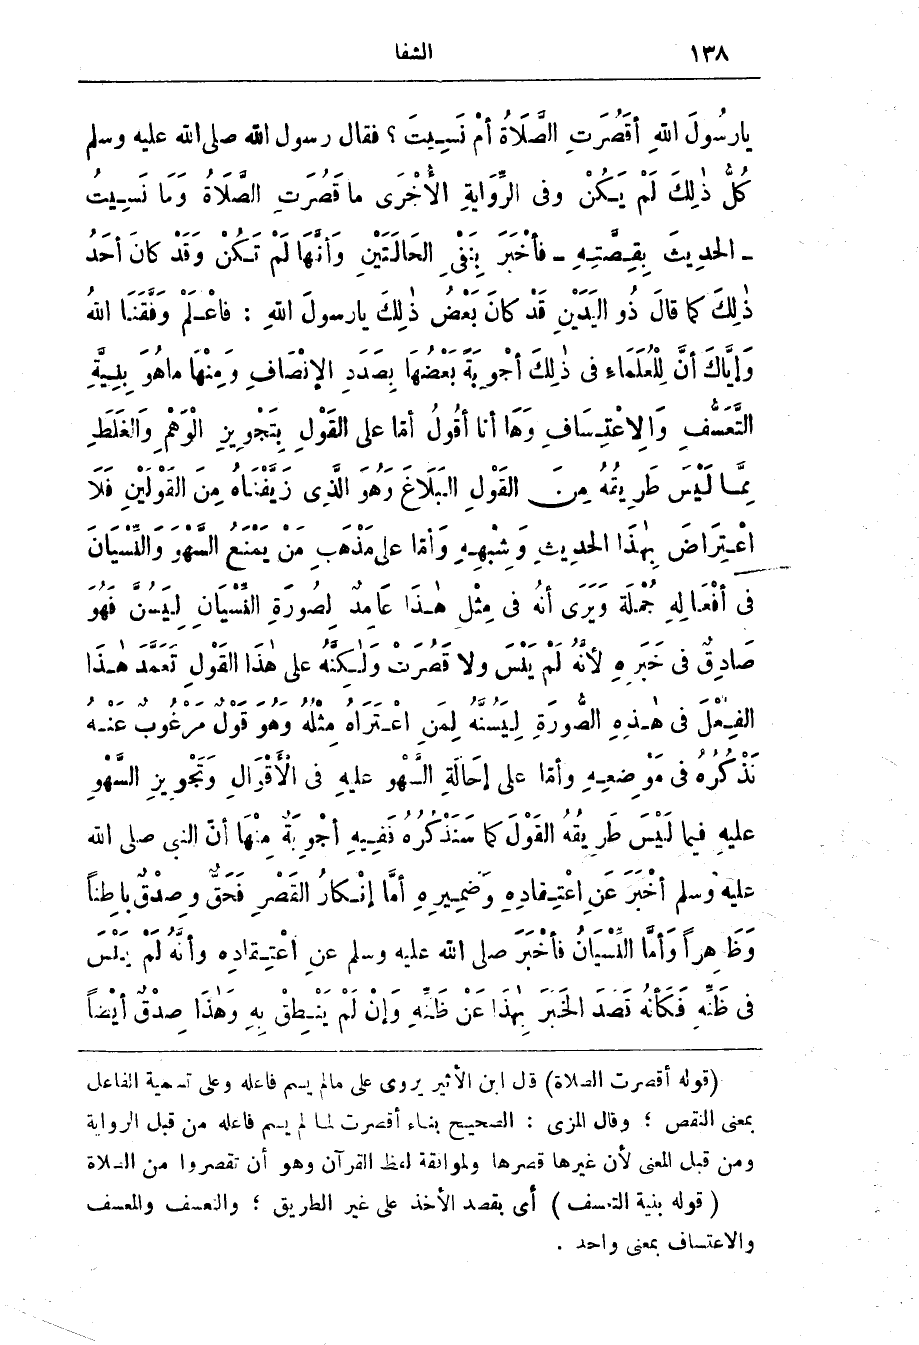 ١٣٨ الشفا
يارسُولَ اللهِ أَقَصُرَتِ الصَّلَاةُ أَمْ نَسِيتَ ؟ فقال رسول الله صلى الله عليه وسلم
كُلُّ ذٰلِكَ لَمْ يَكُنْ وفى الرِّوَايَةِ الأُخْرَى ماقَصُرَتِ الصَّلَاةُ وَمَا نَسِيتُ
ـ الحديثَ بِقِصَّتِهِ ـ فأَخْبَرَ بِنَفْىِ الحَالَتَيْنِ وَأَنَّهَا لَمْ تَكُنْ وَقَدْ كانَ أَحَدُ
ذٰلِكَ كما قالَ ذُو اليَدَيْنِ قَدْ كانَ بَعْضُ ذٰلِكَ يارسولَ اللهِ : فاعْلَمْ وَفَّقَنَا اللهُ
وَإِيَّاكَ أَنَّ لِلْعُلَمَاءِ فى ذٰلِكَ أَجْوِبَةً بَعْضُهَا بِصَدَدِ الإِنْصَافِ وَمِنْهَا ماهُوَ بِنِيَّةِ
التَّعَسُّفِ وَالاِعْتِسَافِ وَهَا أنا أقُولُ أمّا على القَوْلِ بِتَجْوِيزِ الْوَهْمِ وَالغَلَطِ
مِمَّا لَيْسَ طَرِيقُهُ مِنَ القَوْلِ البَلَاغَ وَهُوَ الَّذِى زَيَّفْنَاهُ مِنَ القَوْلَيْنِ فَلَا
اعْتِرَاضَ بِهٰذَا الحَدِيثِ وَشِبْهِهِ وَأمّا على مَذْهَبِ مَنْ يَمْنَعُ السَّهْوَ وَالنِّسْيَانَ
فى أَفْعَالِهِ جُمْلَةً وَيَرَى أنهُ فى مِثْلِ هٰذَا عَامِدٌ لِصُورَةِ النِّسْيَانِ لِيَسُنَّ فَهُوَ
صَادِقٌ فى خَبَرِهِ لأنَّهُ لَمْ يَنْسَ ولا قَصُرَتْ وَلٰكِنَّهُ على هٰذَا القَوْلِ تَعَمَّدَ هٰذَا
الفِعْلَ فى هٰذِهِ الصُّورَةِ لِيَسُنَّهُ لِمَنِ اعْتَرَاهُ مِثْلُهُ وهو قَوْلٌ مرغُوبٌ عَنْهُ
نَذْكُرُهُ فى مَوْضِعِهِ وأمّا على إحَالَةِ السَّهْوِ عليهِ فى الْأَقْوَالِ وَتَجْوِيزِ السَّهْوِ
عليهِ فيما لَيْسَ طَرِيقُهُ القَوْلَ كما سَنَذْكُرُهُ فَفِيهِ أَجْوِبَةٌ مِنْهَا أنّ النبى صلى الله
عليه وسلم أَخْبَرَ عَنِ اعْتِقادِهِ وَضَمِيرِهِ أمَّا إنْكَارُ القَصْرِ فَحَقٌّ وصِدْقٌ باطِناً
وَظَاهِراً وَأَمَّا النِّسْيَانُ فأَخْبَرَ صلى الله عليه وسلم عنِ اعْتِقادِهِ وأنَّهُ لَمْ يَنْسَ
فى ظَنِّهِ فَكَأنَّهُ قَصَدَ الخَبَرَ بِهٰذَا عَنْ ظَنِّهِ وَإنْ لَمْ يَنْطِقْ بِهِ وَهٰذَا صِدْقٌ أيْضاً
(قوله أقصرت الصلاة) قال ابن الأثير يروى على مالم يسم فاعله وعلى تسمية الفاعل
بمعنى النقص ؛ وقال المزى : الصحيح بناء أقصرت لما لم يسم فاعله من قبل الرواية
ومن قبل المعنى لأن غيرها قصرها ولموافقة لفظ القرآن وهو أن تقصروا من الصلاة
( قوله بنية التعسف ) أى بقصد الأخذ على غير الطريق ؛ والتعسف والمعسف
والاعتساف بمعنى واحد .